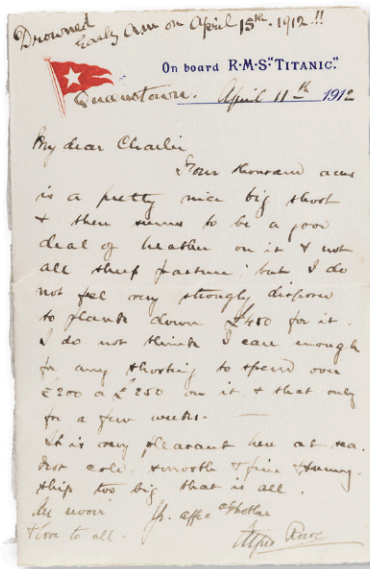 Drowned
Early am on April 15th. 1912!!
On board R·M·S·"TITANIC."
Queenstown. April 11th 1912
My dear Charlie
Four thousand acres
is a pretty nice big shoot
& there seems to be a good
deal of heather on it & not
all sheep pasture; but I do
not feel very strongly disposed
to plank down £450 for it.
I do not think I care enough
for any shooting to spend over
£200 or £250 on it & that only
for a few weeks.
It is very pleasant here at sea.
Not cold, smooth & fine & sunny.
Ship too big that is all.
Au revoir Yr. affec brother
& love to all. Alfred